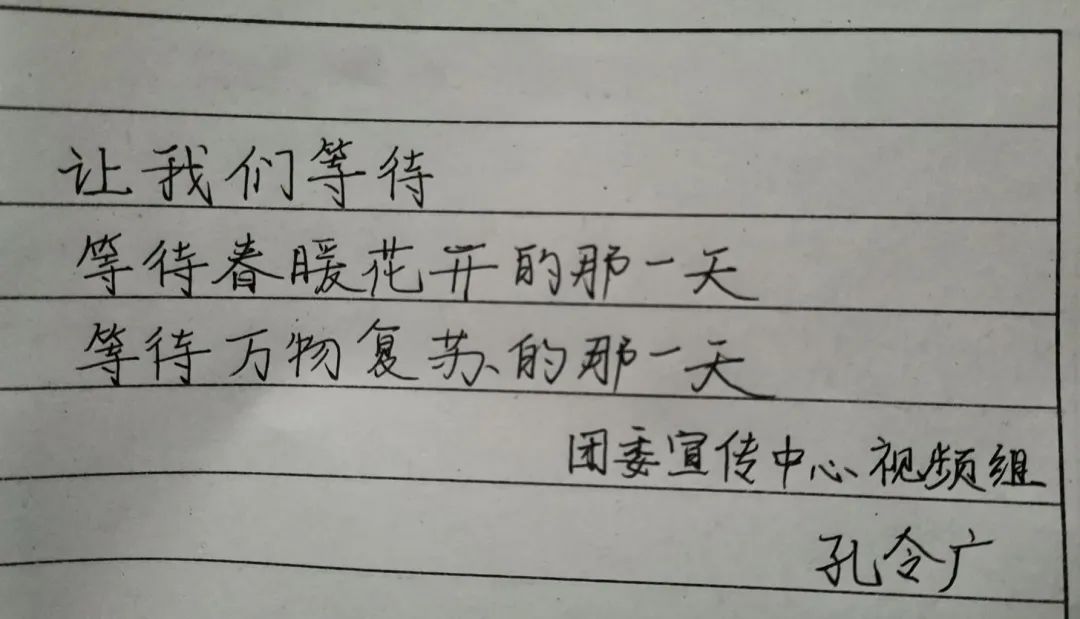 让我们等待
等待春暖花开的那一天
等待万物复苏的那一天
团委宣传中心视频组
孔令广